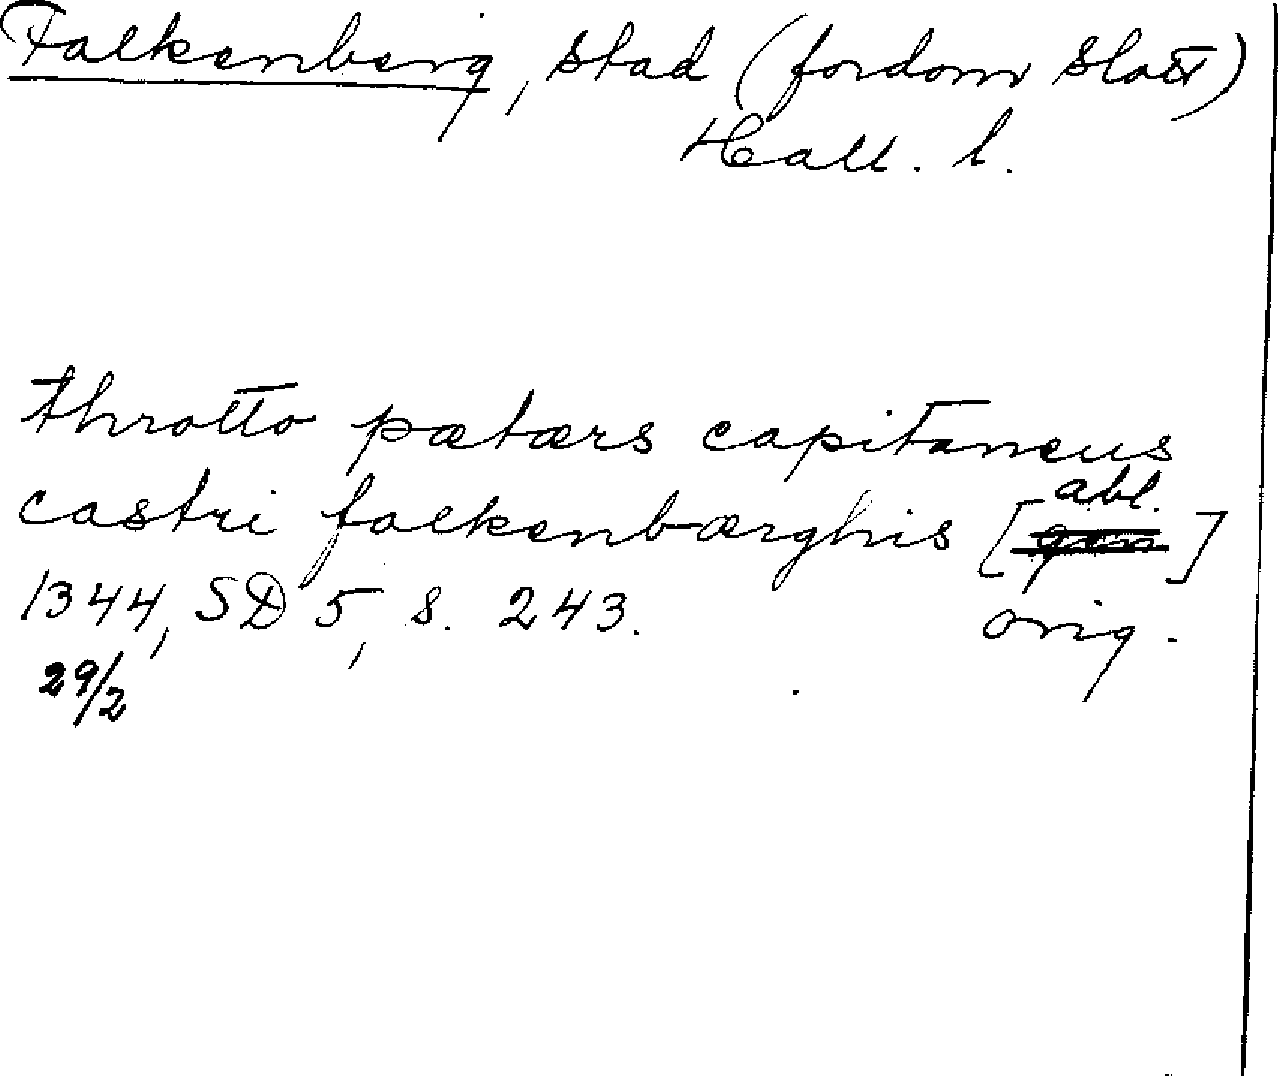 Falkenberg, stad (fordom slott)
Hall. l.
throtto pætærs capitaneus
castri falkenbærghis [abl.]
1344, SD 5, s. 243. orig.
29/2